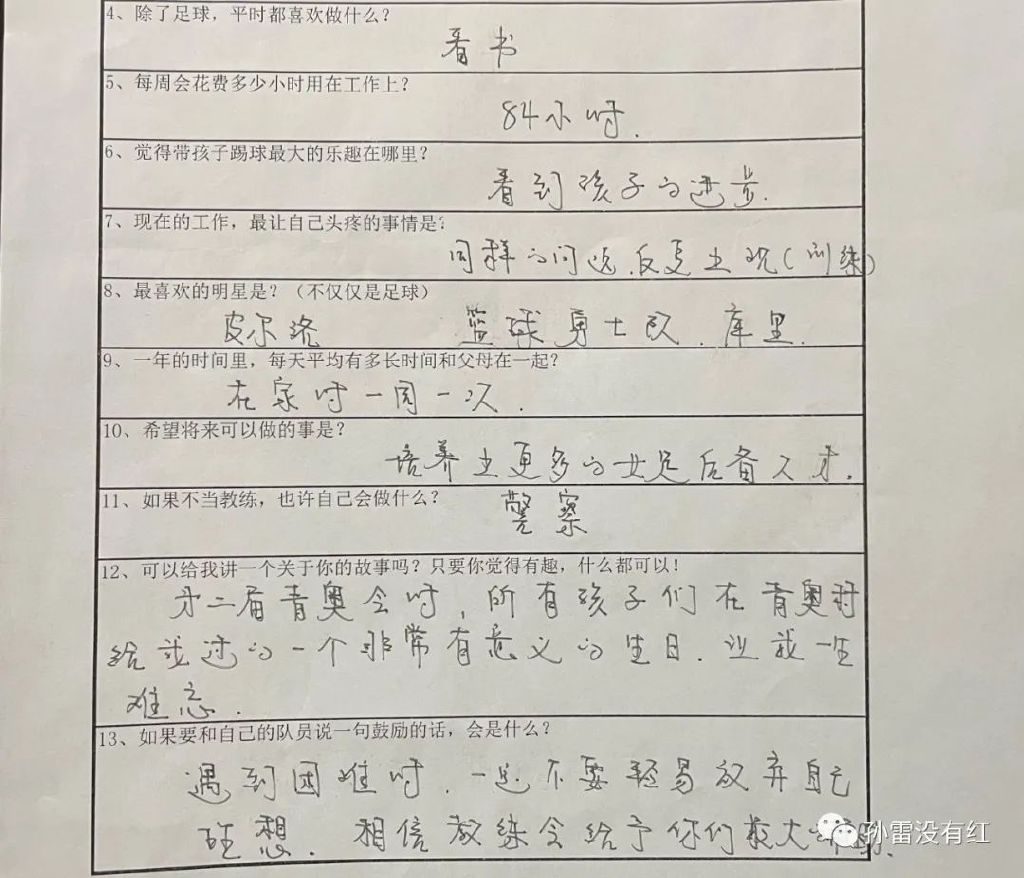 4、除了足球，平时都喜欢做什么？
看书
5、每周会花费多少小时用在工作上？
84小时.
6、觉得带孩子踢球最大的乐趣在哪里？
看到孩子的进步.
7、现在的工作，最让自己头疼的事情是？
同样的问题.反复出现(训练)
8、最喜欢的明星是？（不仅仅是足球）
皮尔洛 篮球勇士队.库里.
9、一年的时间里，每天平均有多长时间和父母在一起？
在家时一周一次.
10、希望将来可以做的事是？
培养出更多的女足后备人才.
11、如果不当教练，也许自己会做什么？
警察
12、可以给我讲一个关于你的故事吗？只要你觉得有趣，什么都可以！
第二届青奥会时,所有孩子们在青奥村
给我过的一个非常有意义的生日.让我一生
难忘.
13、如果要和自己的队员说一句鼓励的话，会是什么？
遇到困难时.一定不要轻易放弃自己
理想.相信教练会给予你们最大
孙雷没有红